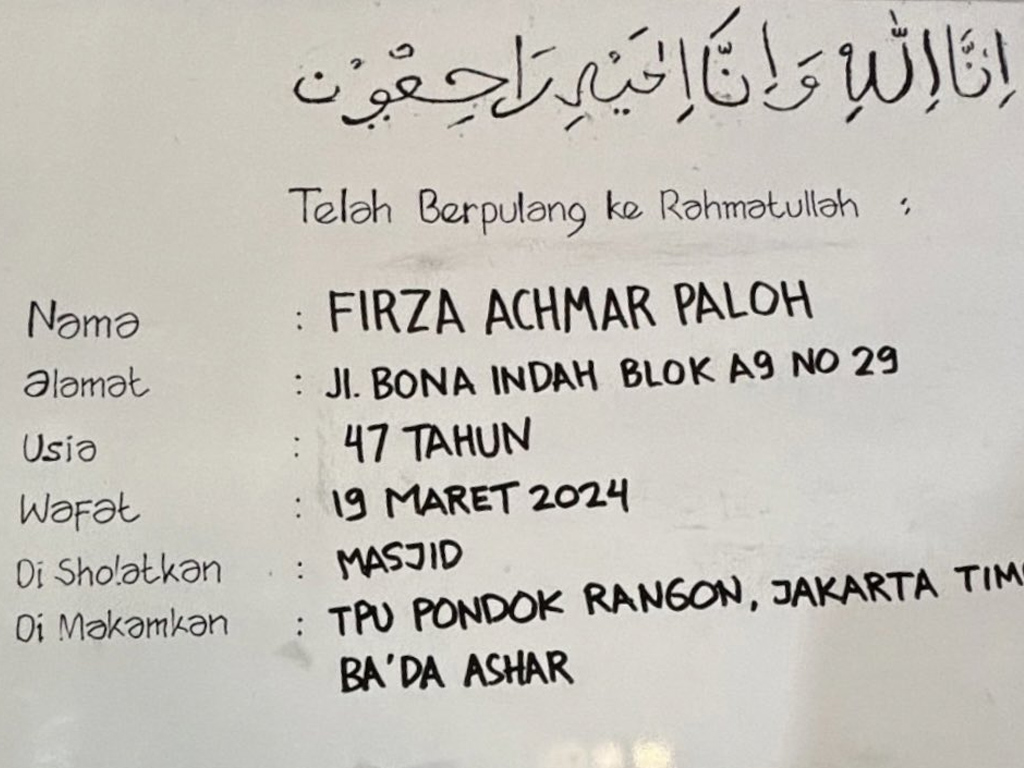 اِنَّا لِلّٰهِ وَاِنَّا اِلَيْهِ رَاجِعُوْنَ
Telah Berpulang ke Rahmatullah :
Nama : FIRZA ACHMAR PALOH
Alamat : Jl. BONA INDAH BLOK A9 NO 29
Usia : 47 TAHUN
Wafat : 19 MARET 2024
Di Sholatkan : MASJID
Di Makamkan : TPU PONDOK RANGON, JAKARTA TIM
BA'DA ASHAR